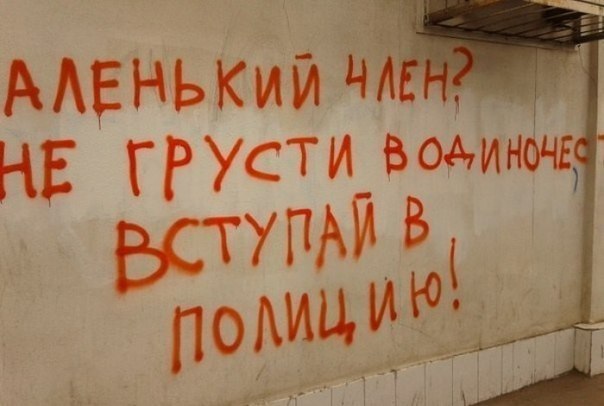 АЛЕНЬКИЙ ЧЛЕН?
НЕ ГРУСТИ В ОДИНОЧЕСТ
ВСТУПАЙ В
ПОЛИЦИЮ!